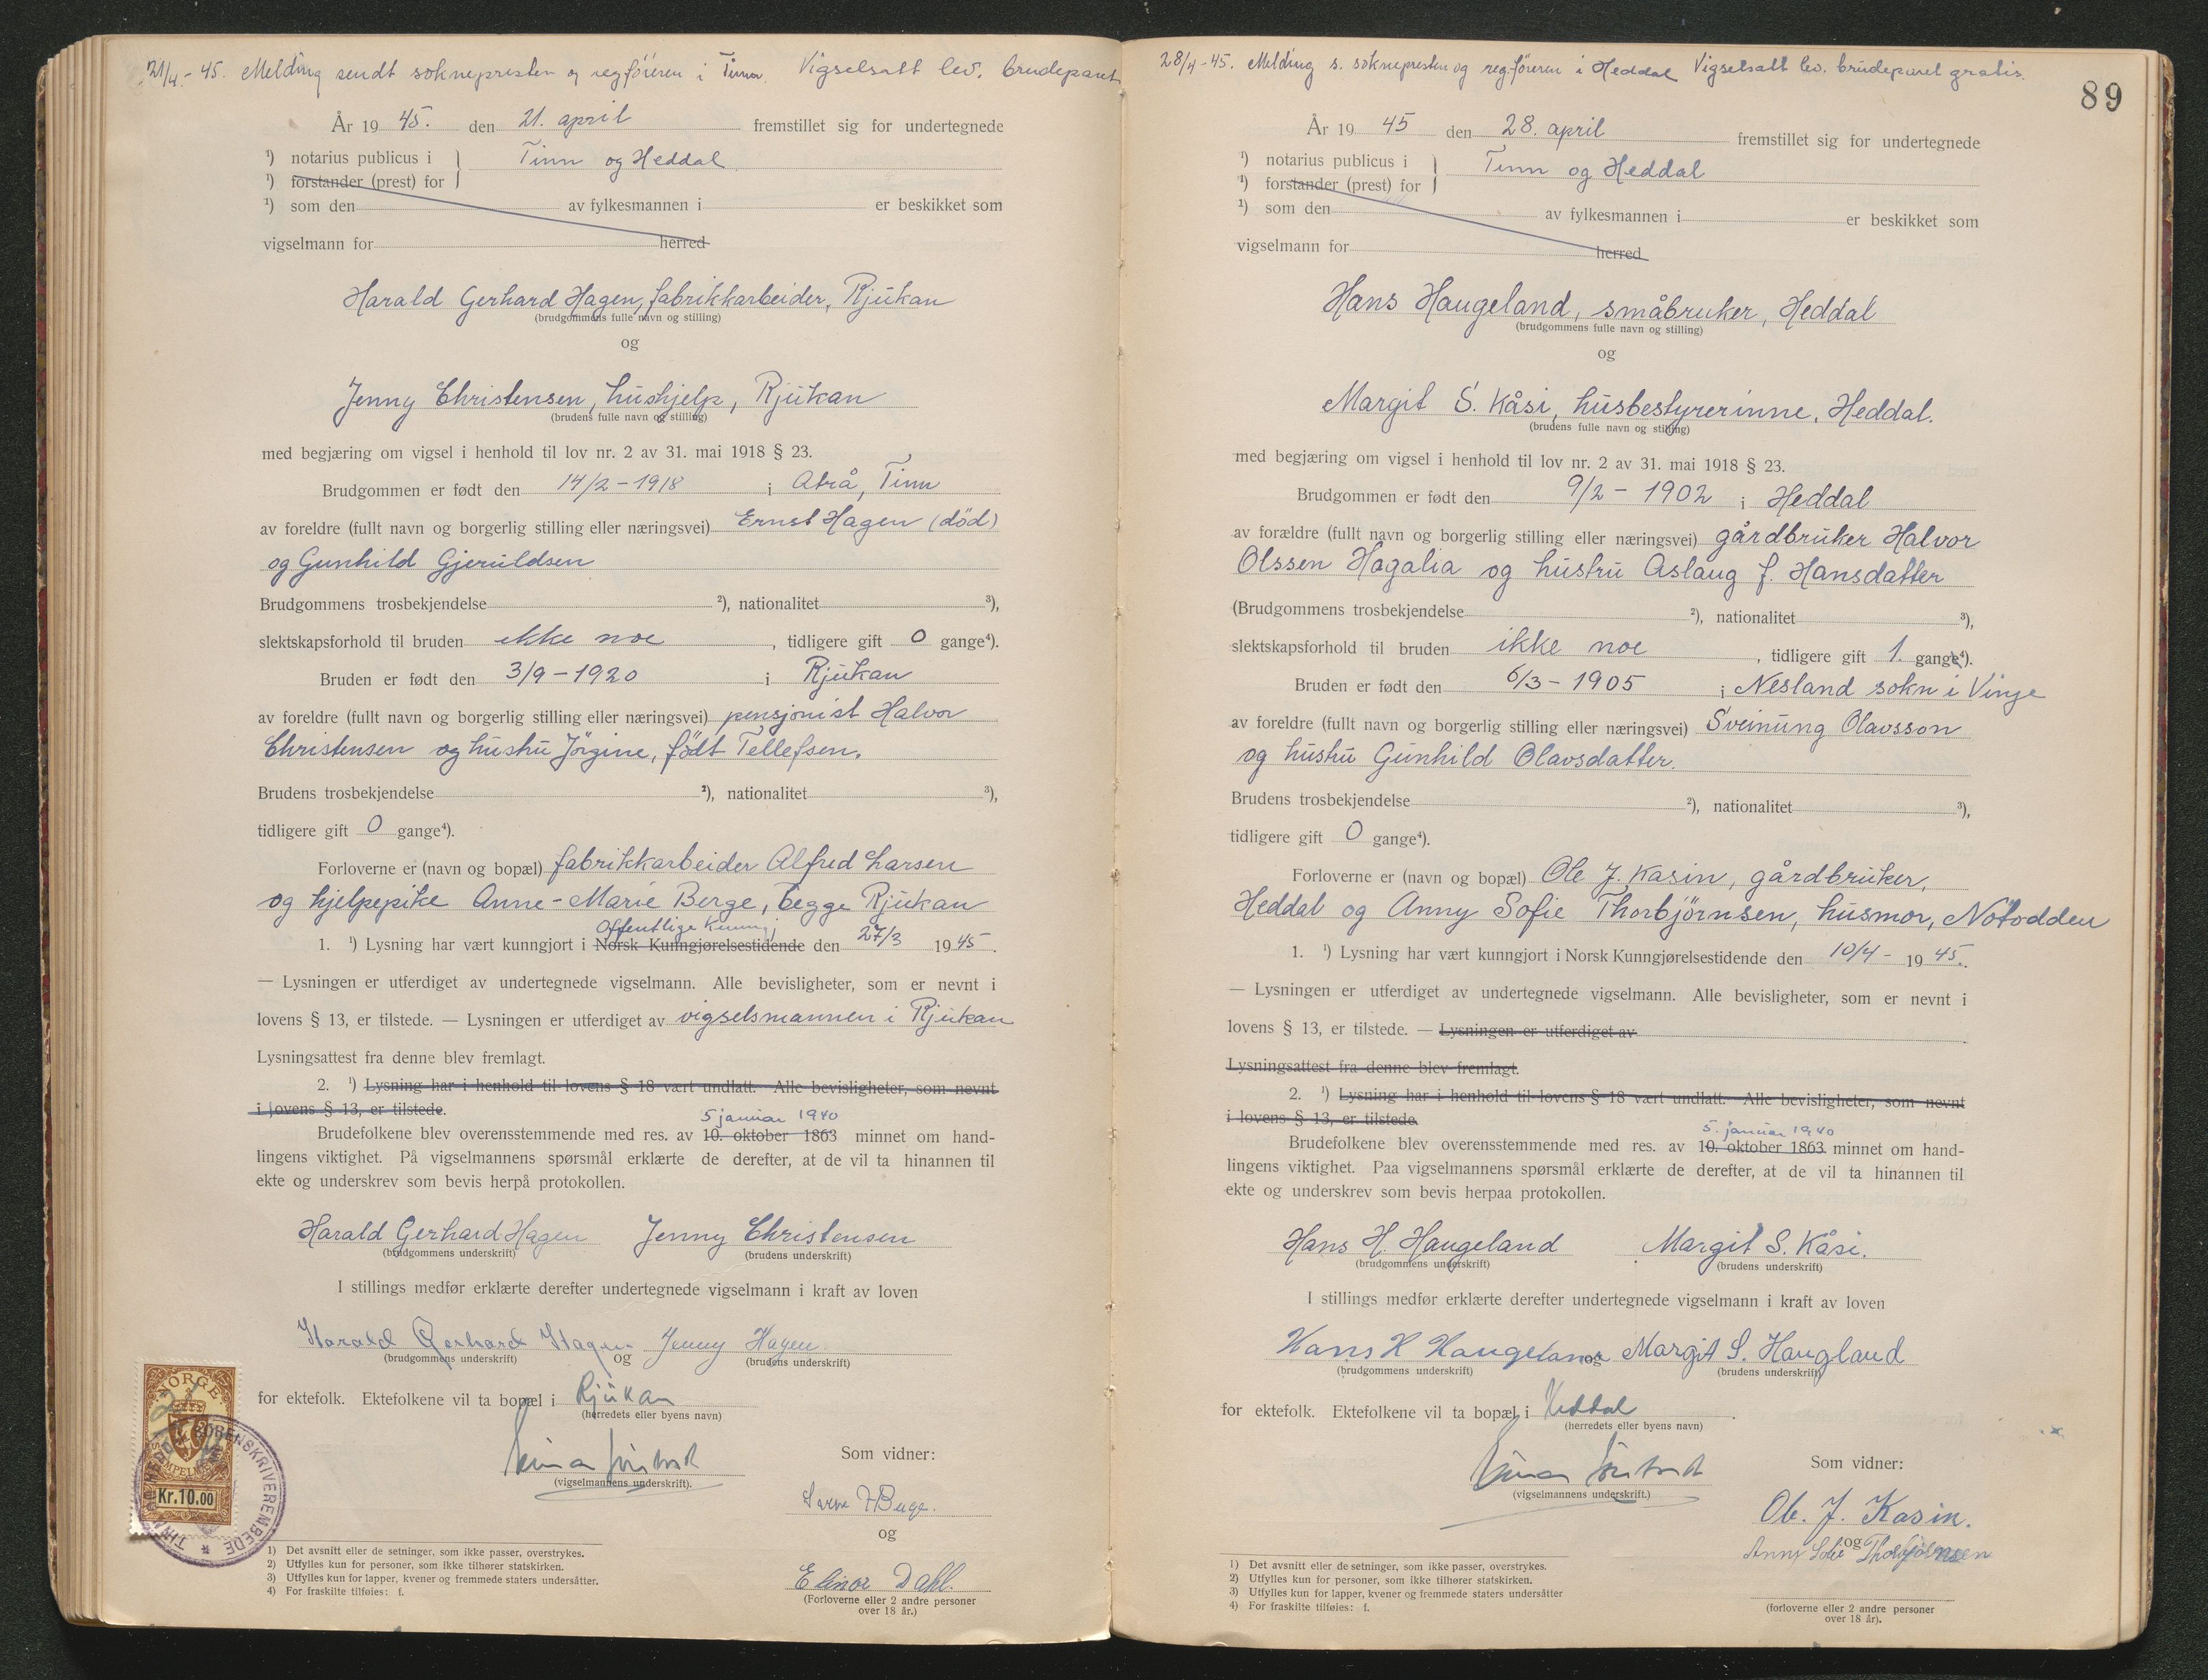 21/4-45. Melding sendt soknepresten og regföreren i Tinn. Vigselsatt lev. brudeparet
År 19 45. den 21. april fremstillet sig for undertegnede
¹) notarius publicus i } Tinn og Heddal
¹) forstander (prest) for
¹) som den av fylkesmannen i er beskikket som
vigselmann for herred
Harald Gerhard Hagen, fabrikkarbeider, Rjukan
(brudgommens fulle navn og stilling)
og
Jenny Christensen, hushjelp, Rjukan
(brudens fulle navn og stilling)
med begjæring om vigsel i henhold til lov nr. 2 av 31. mai 1918 § 23.
Brudgommen er født den 14/2-1918 i Atrå, Tinn
av foreldre (fullt navn og borgerlig stilling eller næringsvei) Ernst Hagen (död)
og Gunhild Gjeruldsen
Brudgommens trosbekjendelse ²), nationalitet ³),
slektskapsforhold til bruden ikke noe, tidligere gift 0 gange⁴).
Bruden er født den 3/9-1920 i Rjukan
av foreldre (fullt navn og borgerlig stilling eller næringsvei) pensjonist Halvor
Christensen og hustru Jörgine, födt Tellefsen.
Brudens trosbekjendelse ²), nationalitet ³),
tidligere gift 0 gange⁴).
Forloverne er (navn og bopæl) fabrikkarbeider Alfred Larsen
og hjelpepike Anne-Marie Berge, begge Rjukan
Offentlige Kunngj
1. ¹) Lysning har vært kunngjort i Norsk Kunngjørelsestidende den 27/3 1945.
— Lysningen er utferdiget av undertegnede vigselmann. Alle bevisligheter, som er nevnt i
lovens § 13, er tilstede. — Lysningen er utferdiget av vigselsmannen i Rjukan
Lysningsattest fra denne blev fremlagt.
2. ¹) Lysning har i henhold til lovens § 18 vært undlatt. Alle bevisligheter, som nevnt
i lovens § 13, er tilstede.
5 januar 1940
Brudefolkene blev overensstemmende med res. av 10. oktober 1863 minnet om hand-
lingens viktighet. På vigselmannens spørsmål erklærte de derefter, at de vil ta hinannen til
ekte og underskrev som bevis herpå protokollen.
Harald Gerhard Hagen Jenny Christensen
(brudgommens underskrift) (brudens underskrift)
I stillings medfør erklærte derefter undertegnede vigselmann i kraft av loven
Harald Gerhard Hagen og Jenny Hagen
(brudgommens underskrift) (brudens underskrift)
for ektefolk. Ektefolkene vil ta bopæl i Rjukan
(herredets eller byens navn)
(vigselmannens underskrift).
Som vidner:
og
Elinor Dahl.
(Forloverne eller 2 andre personer
over 18 år.)
NORGE
STEMPELMERKE
Kr.10.00
SORENSKRIVEREMBEDE
1) Det avsnitt eller de setninger, som ikke passer, overstrykes.
2) Utfylles kun for personer, som ikke tilhører statskirken.
3) Utfylles kun for lapper, kvener og fremmede staters undersåtter.
4) For fraskilte tilføies: f.
28/4-45. Melding s. soknepresten og reg.föreren i Heddal Vigselsatt lev. brudeparet gratis.
89
År 19 45 den 28. april fremstillet sig for undertegnede
¹) notarius publicus i } Tinn og Heddal
¹) forstander (prest) for
¹) som den av fylkesmannen i er beskikket som
vigselmann for herred
Hans Haugeland, småbruker, Heddal
(brudgommens fulle navn og stilling)
og
Margit S. Kåsi, husbestyrerinne, Heddal.
(brudens fulle navn og stilling)
med begjæring om vigsel i henhold til lov nr. 2 av 31. mai 1918 § 23.
Brudgommen er født den 9/2-1902 i Heddal
av forældre (fullt navn og borgerlig stilling eller næringsvei) gårdbruker Halvor
Olssen Hagalia og hustru Aslaug f. Hansdatter
(Brudgommens trosbekjendelse ²), nationalitet ³),
slektskapsforhold til bruden ikke noe, tidligere gift 1. gange⁴).
Bruden er født den 6/3-1905 i Nesland sokn i Vinje
av foreldre (fullt navn og borgerlig stilling eller næringsvei) Sveinung Olavsson
og hustru Gunhild Olavsdatter.
Brudens trosbekjendelse ²), nationalitet ³),
tidligere gift 0 gange⁴).
Forloverne er (navn og bopæl) Ole J. Kasin, gårdbruker,
Heddal og Anny Sofie Thorbjörnsen, husmor, Notodden
1. ¹) Lysning har vært kunngjort i Norsk Kunngjørelsestidende den 10/4- 1945.
— Lysningen er utferdiget av undertegnede vigselmann. Alle bevisligheter, som er nevnt i
lovens § 13, er tilstede. — Lysningen er utferdiget av
Lysningsattest fra denne blev fremlagt.
2. ¹) Lysning har i henhold til lovens § 18 vært undlatt. Alle bevisligheter, som nevnt
i lovens § 13, er tilstede.
5. januar 1940
Brudefolkene blev overensstemmende med res. av 10. oktober 1863 minnet om hand-
lingens viktighet. Paa vigselmannens spørsmål erklærte de derefter, at de vil ta hinannen til
ekte og underskrev som bevis herpaa protokollen.
Hans H. Haugeland Margit S. Kåsi.
(brudgommens underskrift) (brudens underskrift)
I stillings medfør erklærte derefter undertegnede vigselmann i kraft av loven
Hans H Haugeland og Margit S. Haugland
(brudgommens underskrift) (brudens underskrift)
for ektefolk. Ektefolkene vil ta bopæl i Heddal.
(herredets eller byens navn)
(vigselmannens underskrift.)
Som vidner:
Ole. J. Kasin.
og
Anny Sofie Thorbjörnsen
(forloverne eller 2 andre personer
over 18 år).
1) Det avsnitt eller de setninger, som ikke passer, overstrykes.
2) Utfylles kun for personer, som ikke tilhører statskirken.
3) Utfylles kun for lapper, kvener og fremmede staters undersåtter
4) For fraskilte tilføies: f.